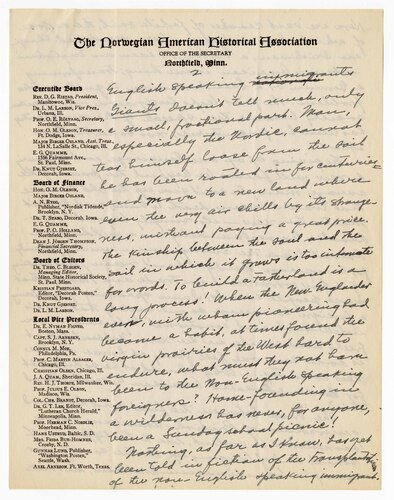 The Norwegian American Historical Association
OFFICE OF THE SECRETARY
Northfield, Minn.
2
Executive Board
REV. D. G. RISTAD, President,
Manitowoc, Wis.
DR. L. M. LARSON, Vice Pres.,
Urbana, Ill.
PROF. O. E. RÖLVAAG, Secretary,
Northfield, Minn.
HON. O. M. OLESON, Treasurer,
Ft. Dodge, Iowa.
MAJOR BIRGER OSLAND, Asst. Treas.,
134 N. LaSalle St., Chicago, Ill.
E. G. QUAMME,
1356 Fairmount Ave.,
St. Paul, Minn.
DR. KNUT GJERSET,
Decorah, Iowa.
Board of Finance
HON. O. M. OLESON,
MAJOR BIRGER OSLAND,
A. N. RYGG,
Publisher, "Nordisk Tidende,"
Brooklyn, N. Y.
DR. T. STABO, Decorah, Iowa.
E. G. QUAMME,
PROF. P. O. HOLLAND,
Northfield, Minn.
DEAN J. JÖRGEN THOMPSON,
Financial Secretary,
Northfield, Minn.
Board of Editors
DR. THEO. C. BLEGEN,
Managing Editor,
Minn. State Historical Society,
St. Paul, Minn.
KRISTIAN PRESTGARD,
Editor, "Decorah Posten,"
Decorah, Iowa.
DR. KNUT GJERSET,
DR. L. M. LARSON,
Local Vice Presidents
DR. E. NYMAN FIGVED,
Boston, Mass.
CAPT. S. J. ARNESEN,
Brooklyn, N. Y.
CONSUL M. MOE,
Philadelphia, Pa.
PROF. C. MARTIN ALSAGER,
Chicago, Ill.
CHRISTIAN OLSEN, Chicago, Ill.
J. A. QUAM, Sheridan, Ill.
REV. H. J. THORPE, Milwaukee, Wis.
PROF. JULIUS E. OLSON,
Madison, Wis.
COL. CHR. BRANDT, Decorah, Iowa
DR. G. T. LEE, Editor,
"Lutheran Church Herald,"
Minneapolis, Minn.
PROF. HERMAN C. NORDLIE,
Moorhead, Minn.
HANS USTRUD, Baltic, S. D.
MRS. FRIDA BUE-HOMNES,
Crosby, N. D.
GUNNAR LUND, Publisher,
"Washington Posten,"
Seattle, Wash.
AXEL ARNESON, Ft. Worth, Texas.
English speaking immigrants
Giants doesn't tell much, only
a small, fractional part. Man,
especially the Nordic, cannot
tear himself loose from the soil
he has been rooted in for centuries
and move to a new land where
even the very air chills by its strange-
ness, without paying a great price.
The kinship between the soul and the
soil in which it grows is too intimate
for words. To build a Fatherland is a
long process! When the New Englander
even, with whom pioneering had
become a habit, at times found the
virgin prairies of the West hard to
endure, what must they not have
been to the Non-English speaking
foreigner! Home-founding in
a wilderness has never, for anyone,
been a Sunday school picnic!
Nothing, as far as I know, has yet
been told in fiction of the transplanting
of the non-English speaking immigrant.